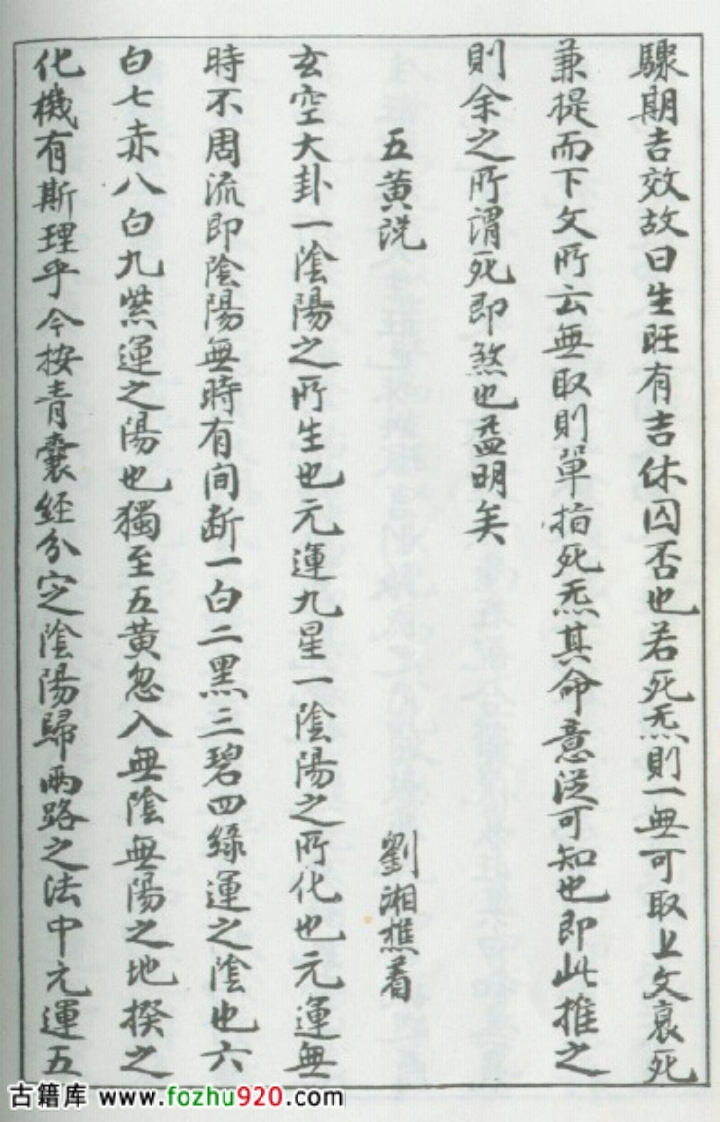 驟期吉效故曰生旺有吉休囚否也若死炁則一無可取上文衰死
兼提而下文所云無取則單指死炁其命意從可知也即此推之
則余之所謂死即煞也益明矣
五黃説 劉湘樵着
玄空大卦一陰陽之所生也元運九星一陰陽之所化也元運無
時不周流即陰陽無時有间断一白二黑三碧四綠運之陰也六
白七赤八白九紫運之陽也獨至五黃忽入無陰無陽之地揆之
化機有斯理乎今按青囊经分定陰陽歸兩路之法中元運五
古籍库 www.fozhu920.com